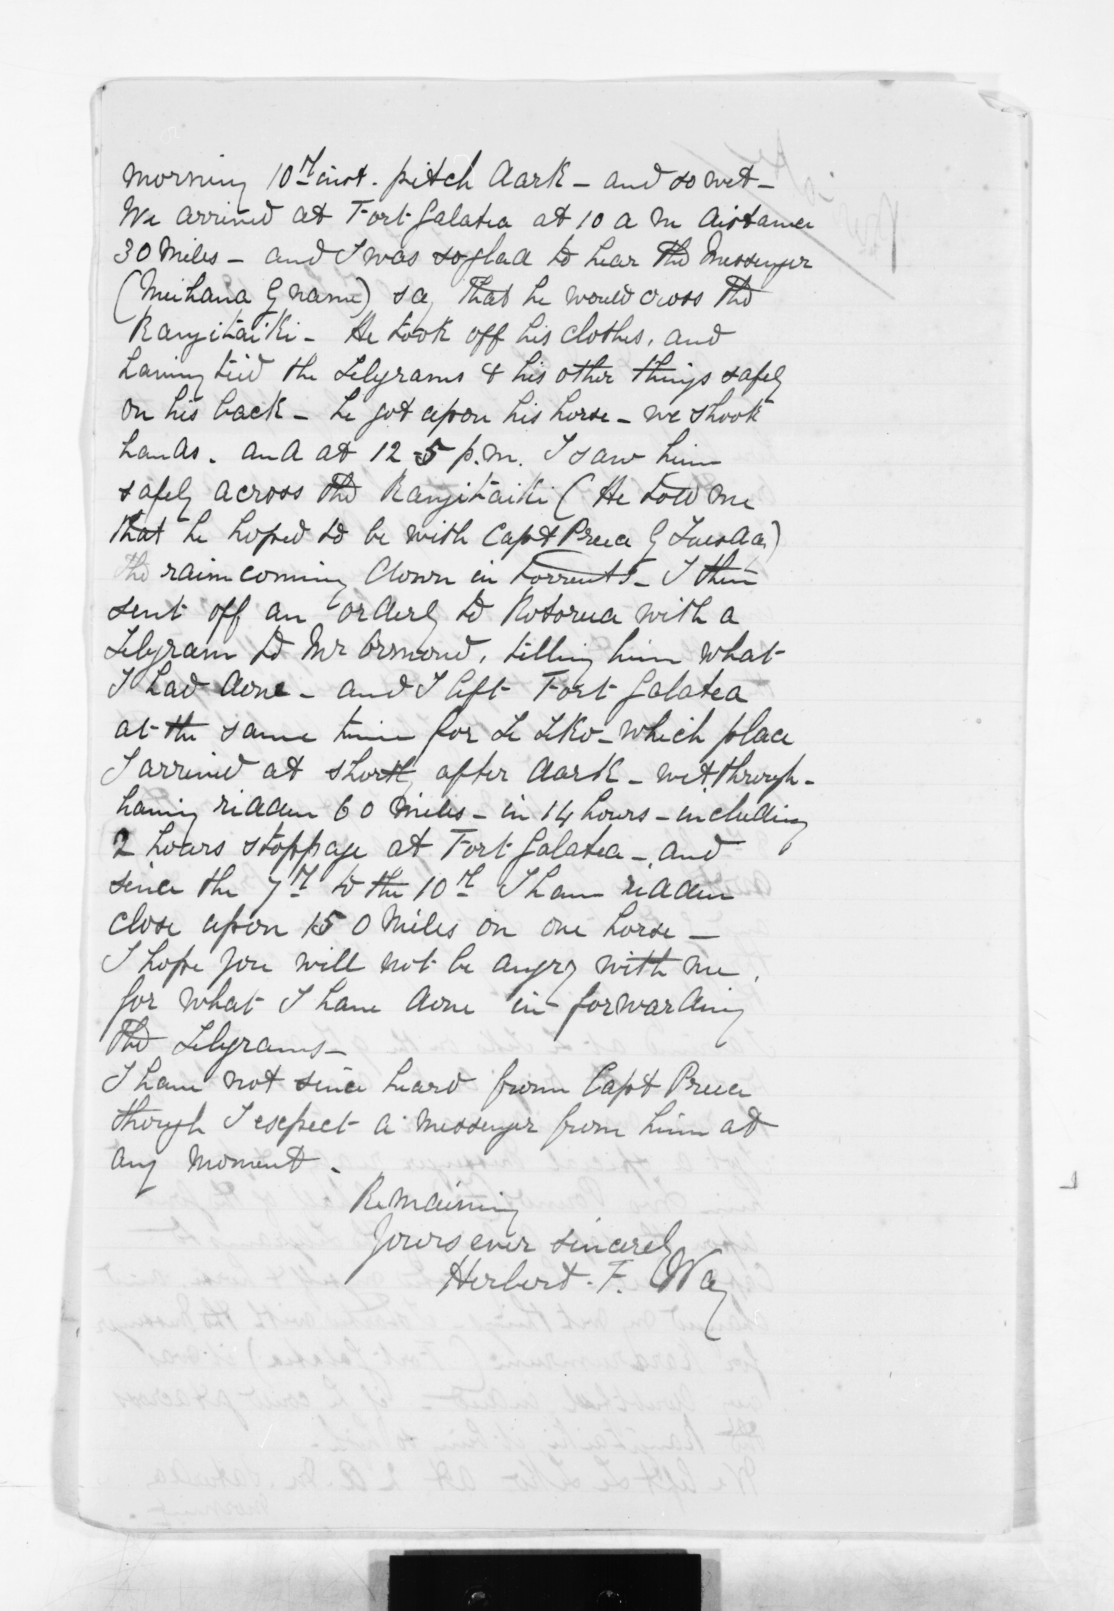 morning 10th inst. pitch dark - and so wet -
We arrived at Fort Galatea at 10 a m distance
30 Miles - and I was so glad to hear the Messenger
(Meihana by name) say that he would cross the
Rangitaiki - He took off his clothes, and
having tied the telegrams & his other things safely
on his back - he got upon his horse - we shook
hands. and at 12.5 p.m. I saw him
safely across the Rangitaiki (He told me
that he hoped to be with Capt Preece by Tuesday)
the rain coming down in torrents - I then
sent off an orderly to Rotorua with a
telegram to Mr Ormond, telling him what
I had done - and I left Fort Galatea
at the same time for Te Teko - which place
I arrived at shortly after dark - wet through -
having ridden 60 Miles - in 14 hours - including
2 hours stoppage at Fort Galatea - and
since the 7th to the 10th I have ridden
close upon 150 Miles on one horse -
I hope you will not be angry with me,
for what I have done in forwarding
the telegrams -
I have not since heard from Capt Preece
though I expect a messenger from him at
any moment.
Remaining
Yours ever sincerely
Herbert. F. Way